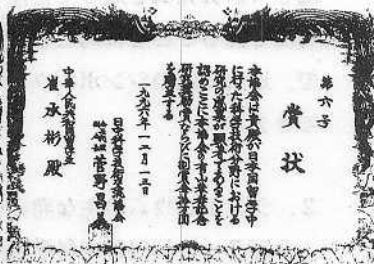 第六号
賞状
本協会は貴殿が日本国留学中
に行った科学技術分野における
研究の成果が顕著であることを
認めここに本協会の有山兼孝記念
研究奨励賞ならびに副賞金拾万円
を贈呈する
一九九六年一二月一三日
日中科学技術交流協会
菅野昌義
中華人民共和国留学生
崔承彬殿